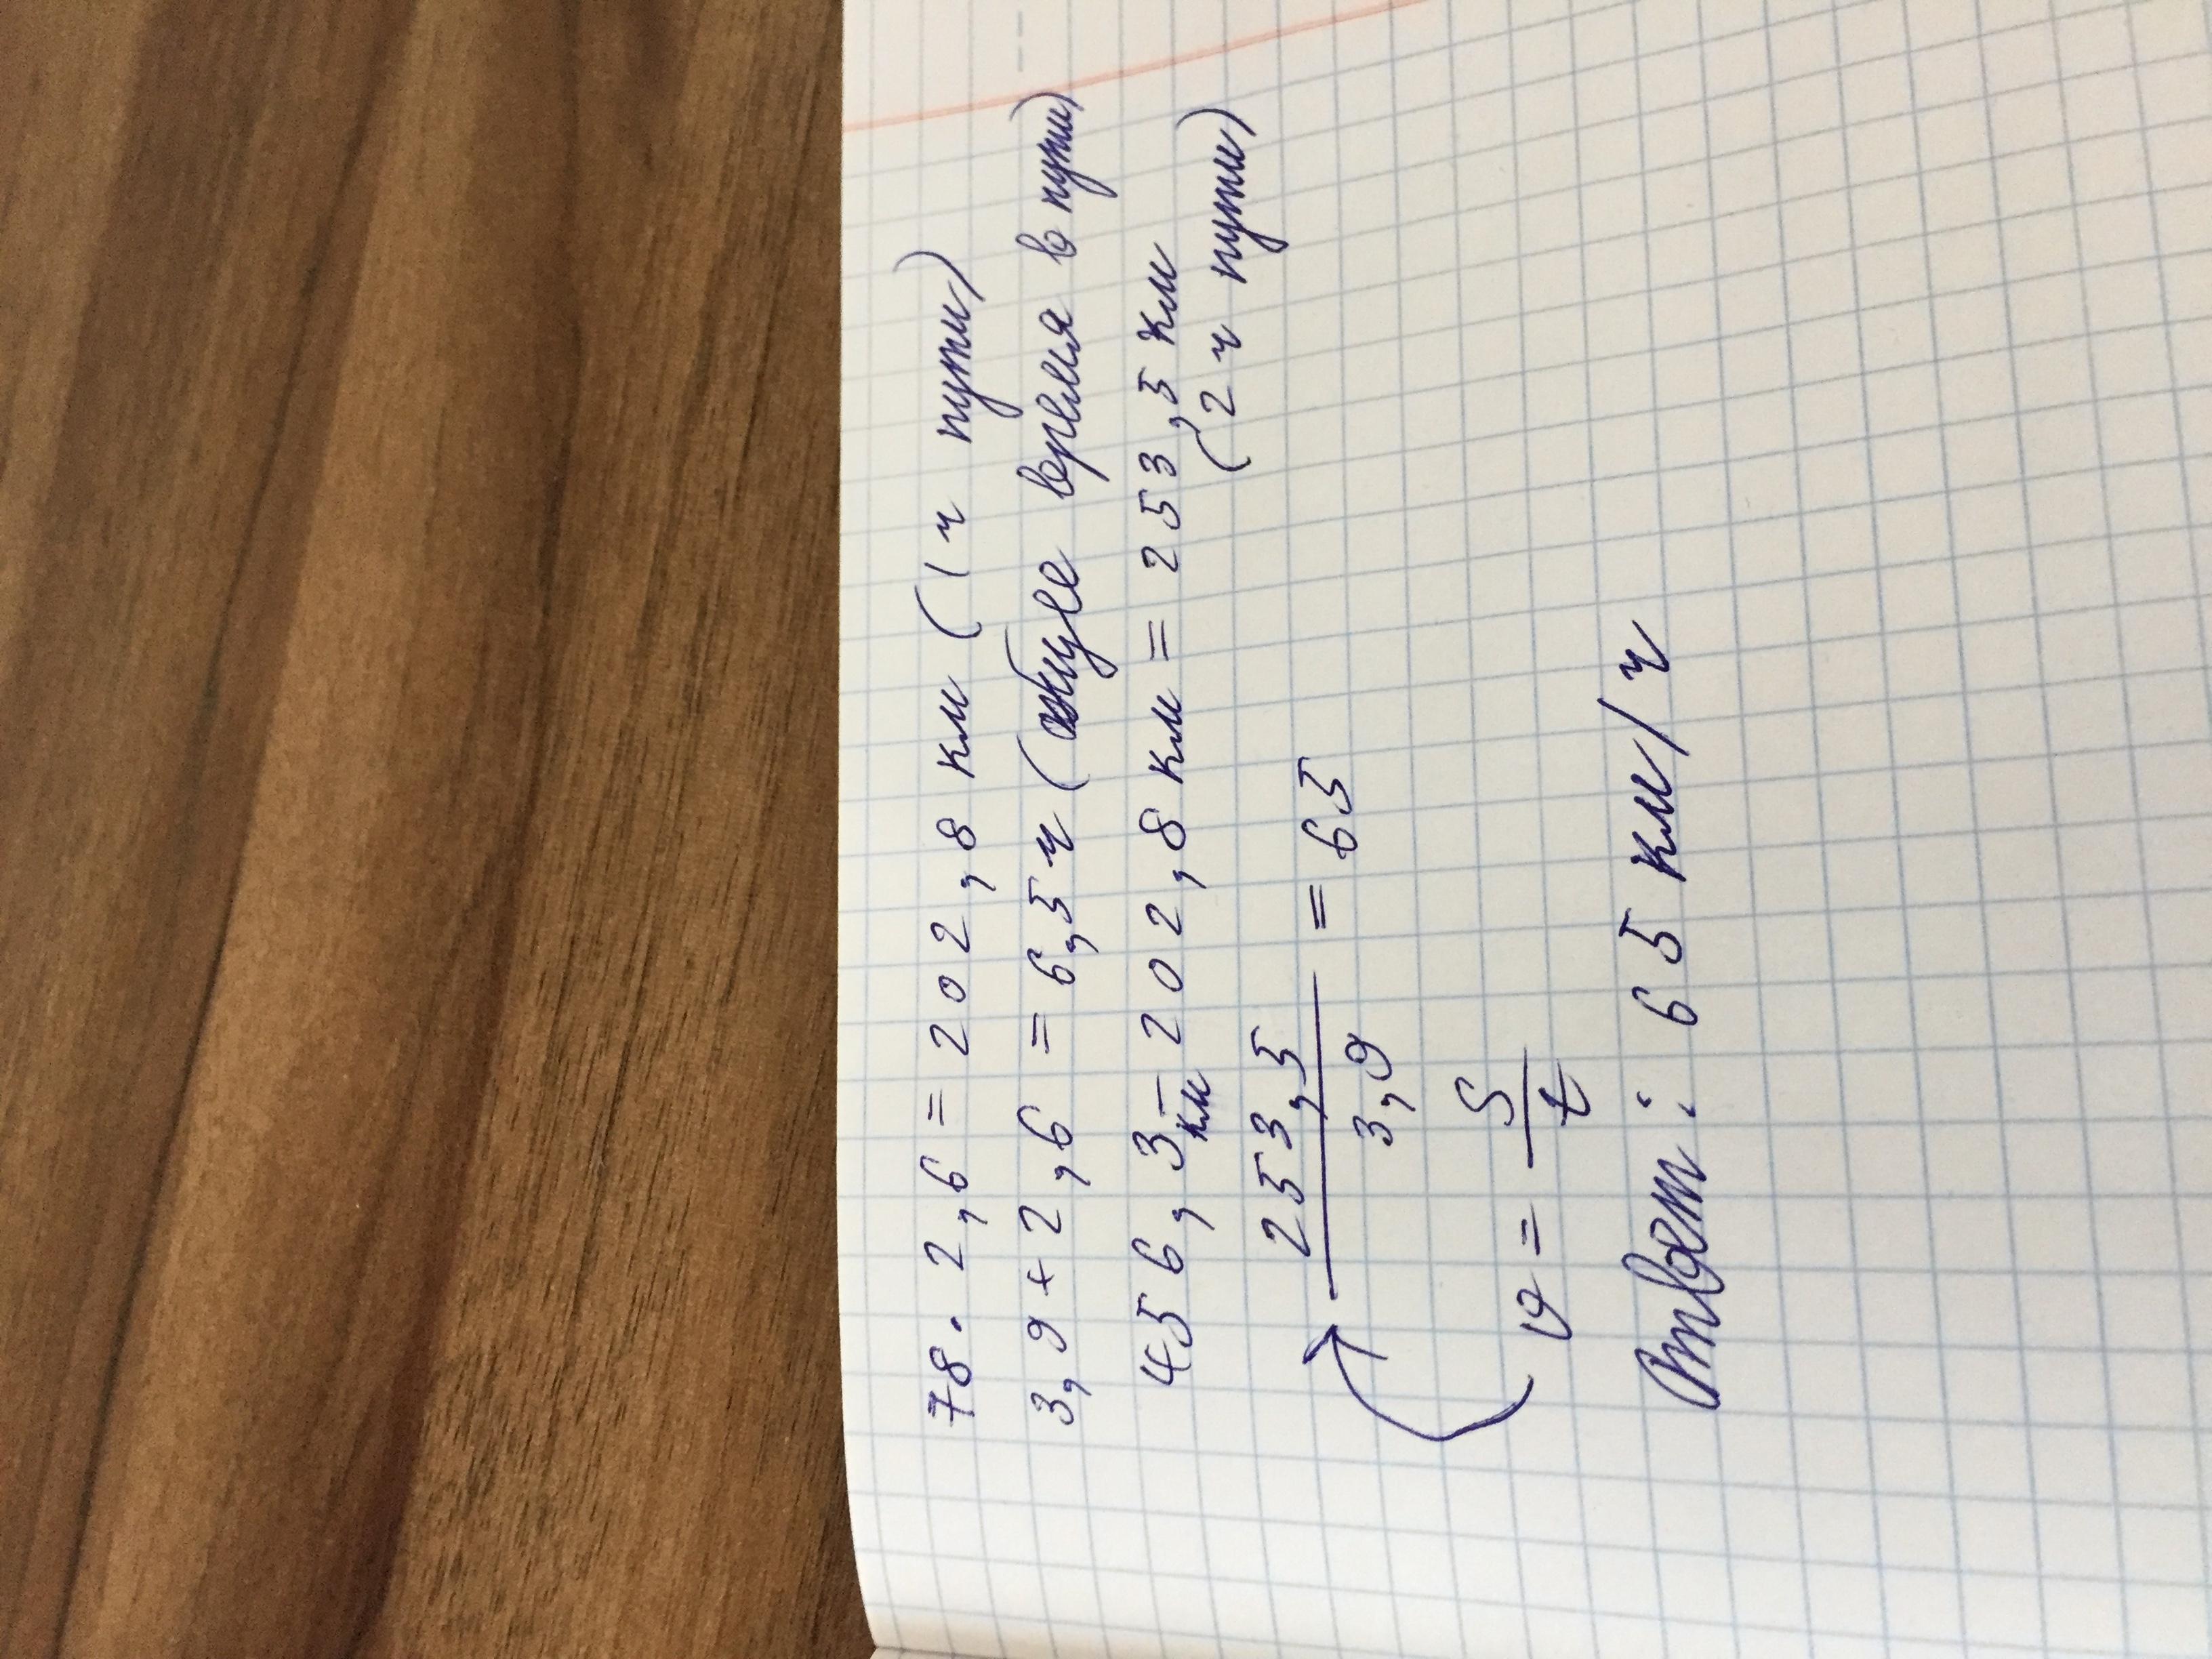 78 · 2,6 = 202,8 км (1 ч пути)
3,9 + 2,6 = 6,5 ч (общее время в пути)
456,3 км – 202,8 км = 253,5 км
(2 ч пути)
253,5 / 3,9 = 65
v = S / t
Ответ: 65 км/ч